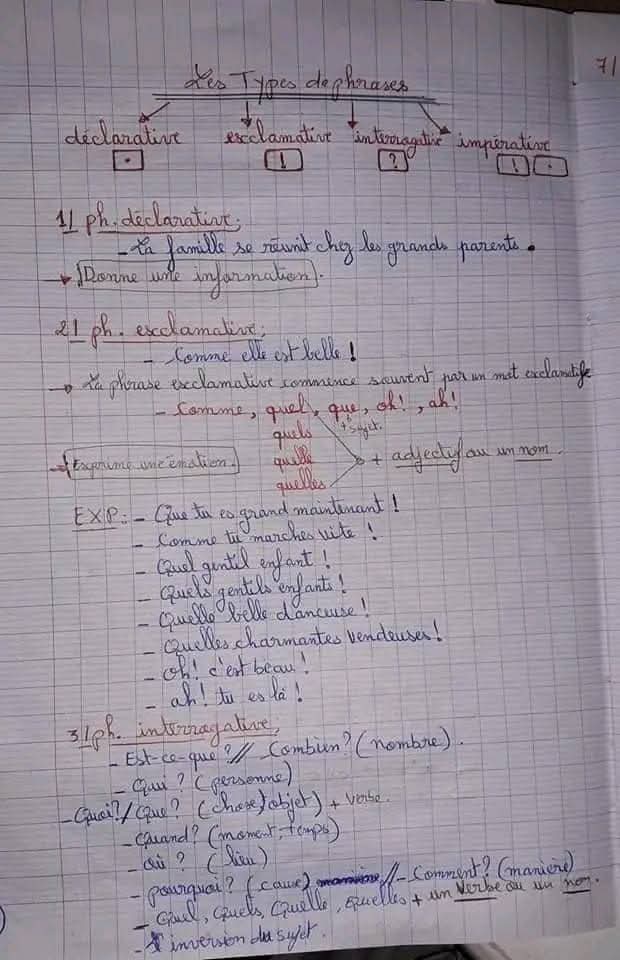 7/
Les Types de phrases
déclarative esclamative interragative impérative
. ! ? ! .
1/ ph. déclarative:
- La famille se réunit chez les grands parents.
→ Donne une information.
2/ ph. esclamative:
- Comme elle est belle !
→ La phrase esclamative commence souvent par un mot exclamatife
- Comme, quel, que, oh!, ah!
quels + sujet.
→ Exprime une émotion. quelle + adjectif ou un nom.
quelles
EXP: - Que tu es grand maintenant !
- Comme tu marches vite !
- Quel gentil enfant !
- Quels gentils enfants !
- Quelle belle danceuse !
- Quelles charmantes vendeuses !
- oh! c'est beau !
- ah! tu es là !
3/ ph. interragative:
- Est-ce-que ? // Combien ? (nombre).
- Qui ? (personne)
- Quoi ? / Que ? (chose/objet) + verbe.
- Quand ? (moment, temps)
- où ? (lieu)
- pourquoi ? (cause) // - Comment ? (manière)
- Quel, Quels, Quelle, Quelles + un verbe ou un nom.
- L'inversion du sujet.